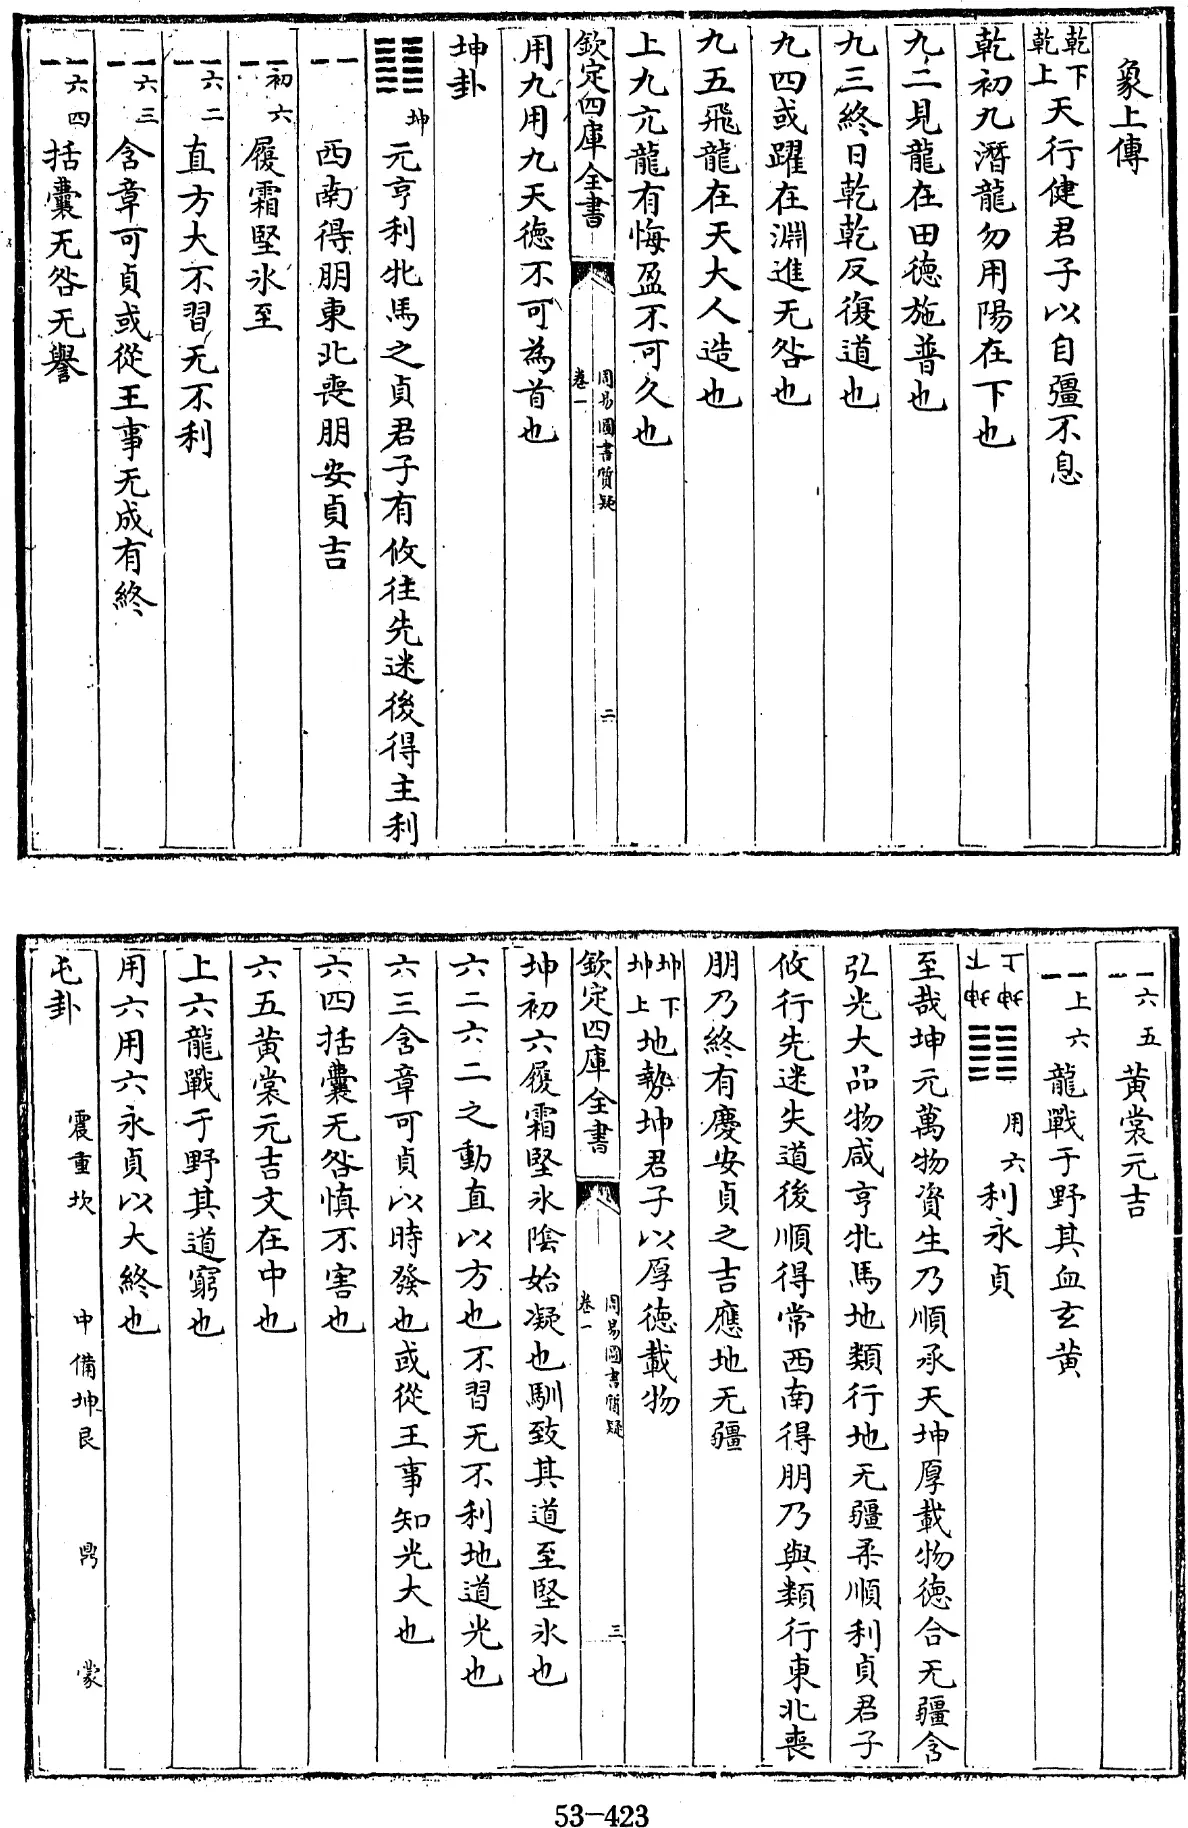 象上傳
乾下乾上天行健君子以自彊不息
乾初九潛龍勿用陽在下也
九二見龍在田德施普也
九三終日乾乾反復道也
九四或躍在淵進无咎也
九五飛龍在天大人造也
上九亢龍有悔盈不可久也
欽定四庫全書
周易圖書質疑
卷一
二
用九用九天德不可為首也
坤卦
坤元亨利牝馬之貞君子有攸往先迷後得主利
西南得朋東北喪朋安貞吉
初六履霜堅氷至
六二直方大不習无不利
六三含章可貞或從王事无成有終
六四括囊无咎无譽
六五黄裳元吉
上六龍戰于野其血玄黄
坤下坤上用六利永貞
至哉坤元萬物資生乃順承天坤厚載物德合无疆含
弘光大品物咸亨牝馬地類行地无疆柔順利貞君子
攸行先迷失道後順得常西南得朋乃與類行東北喪
朋乃終有慶安貞之吉應地无疆
坤下坤上地勢坤君子以厚德載物
欽定四庫全書
周易圖書質疑
卷一
三
坤初六履霜堅氷陰始凝也馴致其道至堅氷也
六二六二之動直以方也不習无不利地道光也
六三含章可貞以時發也或從王事知光大也
六四括囊无咎慎不害也
六五黄裳元吉文在中也
上六龍戰于野其道窮也
用六用六永貞以大終也
屯卦 震重坎 中備坤艮 鼎 蒙
53-423